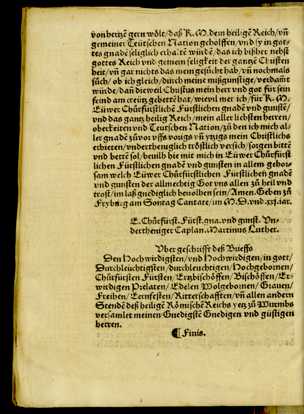 von hertzē gern wölt/daß K.M.dem heilgē Reich/vn̄
gemeiner Teütschen Nation geholffen/vnd jr̄ in got-
tes gnadē seliglich erhaltē würdē/das ich bißher nebst
gottes Reich vnd gemein seligkeit der gantzē Christen
heit/vn̄ gar nichts das mein gesucht hab/vn̄ nochmals
such/ob ich gleich/durch meine mißgünstige/verdāmt
würde/dan̄ die weil Christus mein herr vnd got für sein
feind am creütz gebettē hat/wievil mer ich/für K.M.
Eüwer Chürfürstlichē Fürstlichen gnadē vnd gunstē/
vnd das gantz heilig Reich/mein aller liebsten herren/
oberkeiten vnd Teütschen Nation/zu den ich mich al-
ler gnadē zůuor vßzugs vn̄ yrzigs mein Christlichs
erbieten/vndertheniglich tröstlich versich/sorgen bittē
vnd bettē sol/beuilh hie mit mich in Eüwer Chürfürst
lichen Fürstlichen gnadē vnd gunsten in allem gehor-
sam welch Eüwer Chürfürstlichen Fürstlichen gnadē
vnd gunsten der allmechtig Got vns allen zů heil vnd
trost/im laß gnediglich beuolhen sein/Amen.Geben zů
Fryburg am Sontag Cantate/im M.D.vnd.xxj.iar.
E.Chürfürst.Fürst.gna.vnd gunst.Vn-
dertheniger Caplan.Martinus Luther.
Vber geschrifft deß Brieffs
Den Hochwirdigsten/vnd Hochwirdigen/in gott/
Durchleuchtigsten/durchleuchtigen/Hochgebornen/
Chürfürsten Fürsten/Ertzbischöffen/Bischöffen/Er-
wirdigen Prelaten/Edelen Wolgebornen/Grauen/
Freihen/Ernfesten/Ritterschafften/vn̄ allen andern
Stendē deß heiligē Römische Reichs yetz zů Wurmbs
versamlet meinen Gnedigstē Gnedigen vnd günstigen
herren.
¶ Finis.